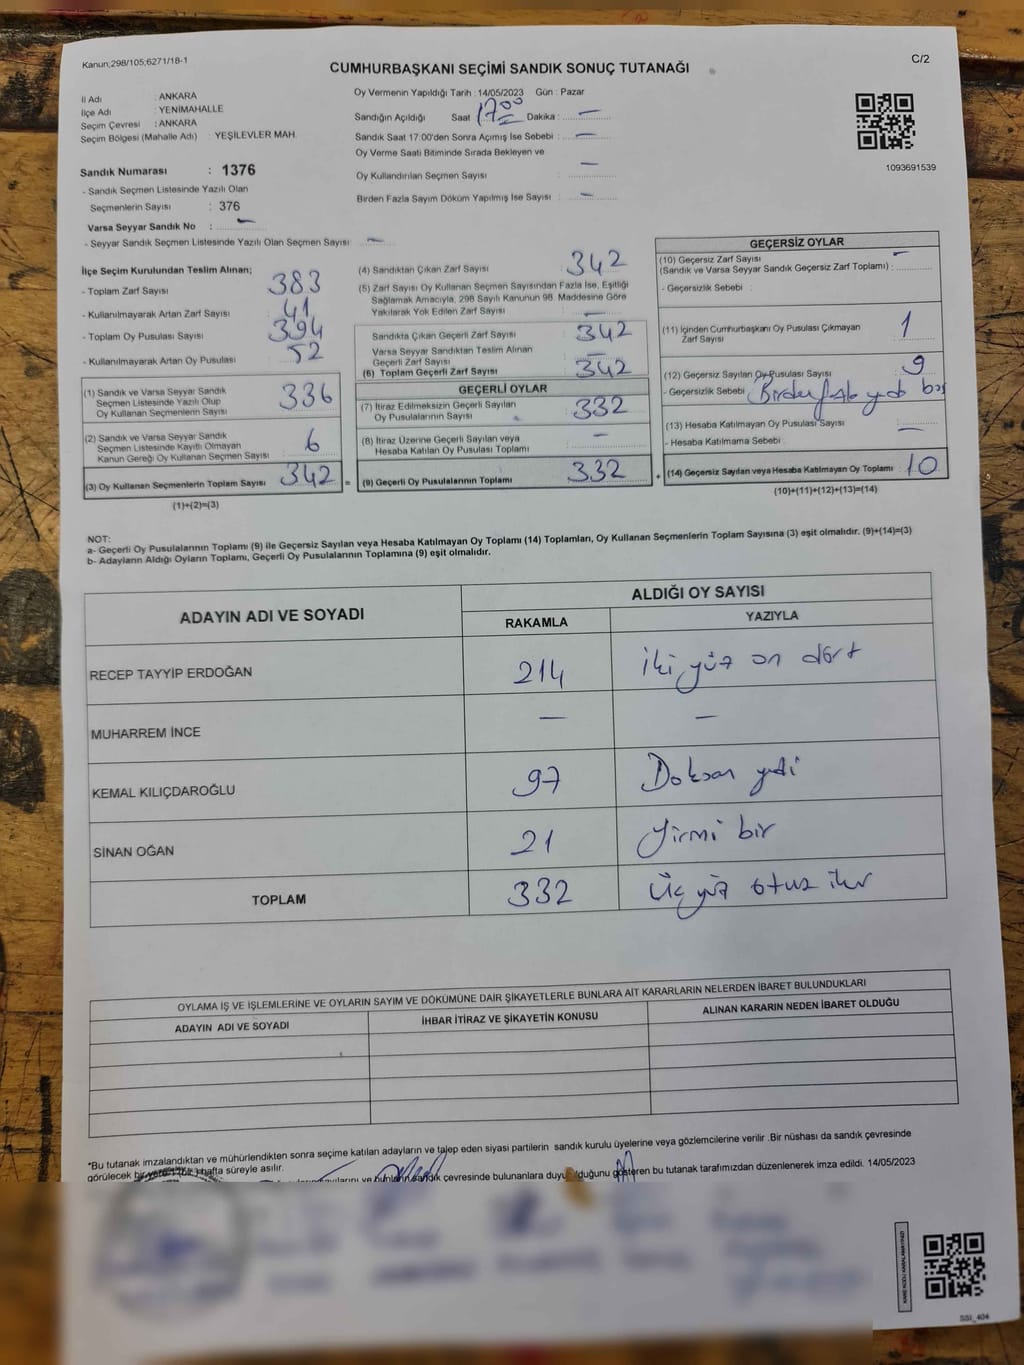 Kanun;298/105;6271/18-1
C/2
CUMHURBAŞKANI SEÇİMİ SANDIK SONUÇ TUTANAĞI
İl Adı : ANKARA
İlçe Adı : YENİMAHALLE
Seçim Çevresi : ANKARA
Seçim Bölgesi (Mahalle Adı) : YEŞİLEVLER MAH.
Sandık Numarası : 1376
- Sandık Seçmen Listesinde Yazılı Olan
Seçmenlerin Sayısı : 376
Varsa Seyyar Sandık No : -
- Seyyar Sandık Seçmen Listesinde Yazılı Olan Seçmen Sayısı : -
Oy Vermenin Yapıldığı Tarih : 14/05/2023 Gün : Pazar
Sandığın Açıldığı Saat 17:00 Dakika : -
Sandık Saat 17:00'den Sonra Açılmış İse Sebebi : -
Oy Verme Saati Bitiminde Sırada Bekleyen ve
Oy Kullandırılan Seçmen Sayısı : -
Birden Fazla Sayım Döküm Yapılmış İse Sayısı : -
1093691539
İlçe Seçim Kurulundan Teslim Alınan;
- Toplam Zarf Sayısı 383
- Kullanılmayarak Artan Zarf Sayısı : 41
- Toplam Oy Pusulası Sayısı 394
- Kullanılmayarak Artan Oy Pusulası : 52
(1) Sandık ve Varsa Seyyar Sandık
Seçmen Listesinde Yazılı Olup
Oy Kullanan Seçmenlerin Sayısı 336
(2) Sandık ve Varsa Seyyar Sandık
Seçmen Listesinde Kayıtlı Olmayan
Kanun Gereği Oy Kullanan Seçmen Sayısı : 6
(3) Oy Kullanan Seçmenlerin Toplam Sayısı : 342 =
(1)+(2)=(3)
(4) Sandıktan Çıkan Zarf Sayısı : 342
(5) Zarf Sayısı Oy Kullanan Seçmen Sayısından Fazla İse, Eşitliği
Sağlamak Amacıyla, 298 Sayılı Kanunun 98. Maddesine Göre
Yakılarak Yok Edilen Zarf Sayısı : -
Sandıkta Çıkan Geçerli Zarf Sayısı : 342
Varsa Seyyar Sandıktan Teslim Alınan
Geçerli Zarf Sayısı : -
(6) Toplam Geçerli Zarf Sayısı : 342
GEÇERLİ OYLAR
(7) İtiraz Edilmeksizin Geçerli Sayılan
Oy Pusulalarının Sayısı : 332
(8) İtiraz Üzerine Geçerli Sayılan veya
Hesaba Katılan Oy Pusulası Toplamı : -
(9) Geçerli Oy Pusulalarının Toplamı : 332 +
GEÇERSİZ OYLAR
(10) Geçersiz Zarf Sayısı
(Sandık ve Varsa Seyyar Sandık Geçersiz Zarf Toplamı) : -
- Geçersizlik Sebebi :
(11) İçinden Cumhurbaşkanı Oy Pusulası Çıkmayan
Zarf Sayısı : 1
(12) Geçersiz Sayılan Oy Pusulası Sayısı : 9
- Geçersizlik Sebebi :
(13) Hesaba Katılmayan Oy Pusulası Sayısı : -
- Hesaba Katılmama Sebebi :
(14) Geçersiz Sayılan veya Hesaba Katılmayan Oy Toplamı : 10
(10)+(11)+(12)+(13)=(14)
NOT:
a- Geçerli Oy Pusulalarının Toplamı (9) ile Geçersiz Sayılan veya Hesaba Katılmayan Oy Toplamı (14) Toplamları, Oy Kullanan Seçmenlerin Toplam Sayısına (3) eşit olmalıdır. (9)+(14)=(3)
b- Adayların Aldığı Oyların Toplamı, Geçerli Oy Pusulalarının Toplamına (9) eşit olmalıdır.
ADAYIN ADI VE SOYADI ALDIĞI OY SAYISI
RAKAMLA YAZIYLA
RECEP TAYYİP ERDOĞAN 214 İki yüz on dört
MUHARREM İNCE - -
KEMAL KILIÇDAROĞLU 97 Doksan yedi
SİNAN OĞAN 21 Yirmi bir
TOPLAM 332 Üç yüz otuz iki
OYLAMA İŞ VE İŞLEMLERİNE VE OYLARIN SAYIM VE DÖKÜMÜNE DAİR ŞİKAYETLERLE BUNLARA AİT KARARLARIN NELERDEN İBARET BULUNDUKLARI
ADAYIN ADI VE SOYADI İHBAR İTİRAZ VE ŞİKAYETİN KONUSU ALINAN KARARIN NEDEN İBARET OLDUĞU
*Bu tutanak imzalandıktan ve mühürlendikten sonra seçime katılan adayların ve talep eden siyasi partilerin sandık kurulu üyelerine veya gözlemcilerine verilir .Bir nüshası da sandık çevresinde
görülecek bir yere 1 (bir) hafta süreyle asılır.
sandık çevresinde bulunanlara gösteren bu tutanak tarafımızdan düzenlenerek imza edildi. 14/05/2023
SSİ_404